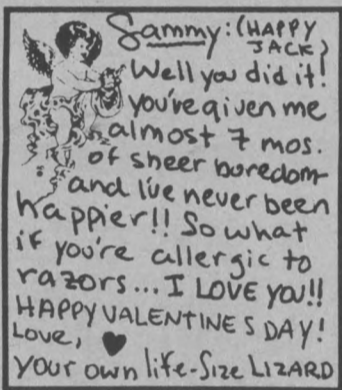 Sammy: (HAPPY
JACK)
Well you did it!
you've given me
almost 7 mos.
of sheer boredom
and I've never been
happier!! So what
if you're allergic to
razors... I LOVE YOU!!
HAPPY VALENTINES DAY!
Love, ♥
your own life-size LIZARD